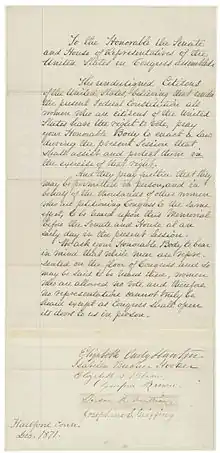 To the Honorable the Senate
and House of Representatives of the
United States in Congress assembled:
The undersigned Citizens
of the United States, believing that under
the present Federal Constitution all
women who are citizens of the United
States have the right to vote, pray
your Honorable Body to enact a law
during the present Session that
shall assist and protect them in
the exercise of that right.
And they pray further that they
may be permitted in person, and in
behalf of the thousands of other women
who are petitioning Congress to the same
effect, to be heard upon this Memorial
before the Senate and House at an
early day in the present session.
We ask your Honorable Body to bear
in mind that while men are repre-
sented on the floor of Congress and so
may be said to be heard there, women
who are allowed no vote and therefore
no representation cannot truly be
heard except as Congress shall open
its doors to us in person.
Elizabeth Cady Stanton
Isabella Beecher Hooker
Elizabeth L. Bladen
Olympia Brown
Susan B. Anthony
Josephine S. Griffing
Hartford Conn.
Dec. 1871.